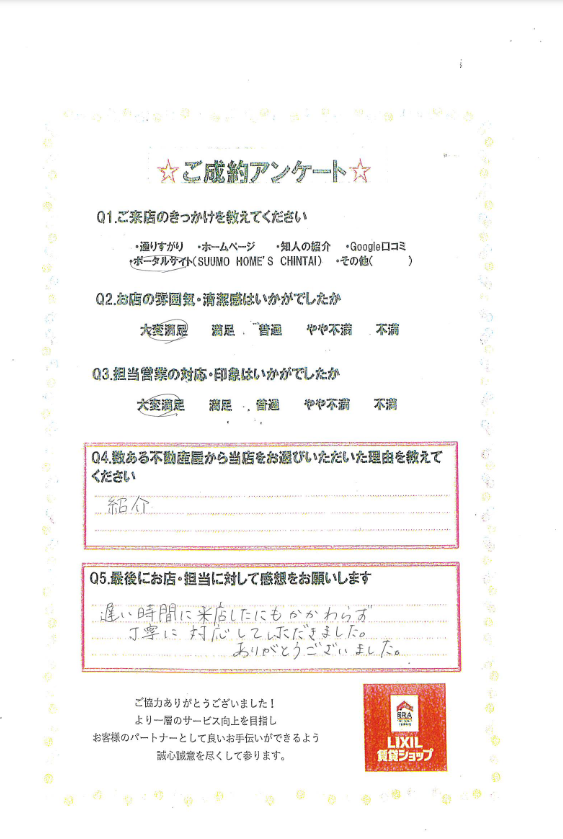 ☆ご成約アンケート☆
Q1.ご来店のきっかけを教えてください
・通りすがり ・ホームページ ・知人の紹介 ・Google口コミ
・ポータルサイト(SUUMO HOME'S CHINTAI) ・その他( )
Q2.お店の雰囲気・清潔感はいかがでしたか
大変満足 満足 普通 やや不満 不満
Q3.担当営業の対応・印象はいかがでしたか
大変満足 満足 普通 やや不満 不満
Q4.数ある不動産屋から当店をお選びいただいた理由を教えて
ください
紹介
Q5.最後にお店・担当に対して感想をお願いします
遅い時間に来店したにもかかわらず
丁寧に対応していただきました。
ありがとうございました。
ご協力ありがとうございました!
より一層のサービス向上を目指し
お客様のパートナーとして良いお手伝いができるよう
誠心誠意を尽くして参ります。
ERA
LIXIL
賃貸ショップ